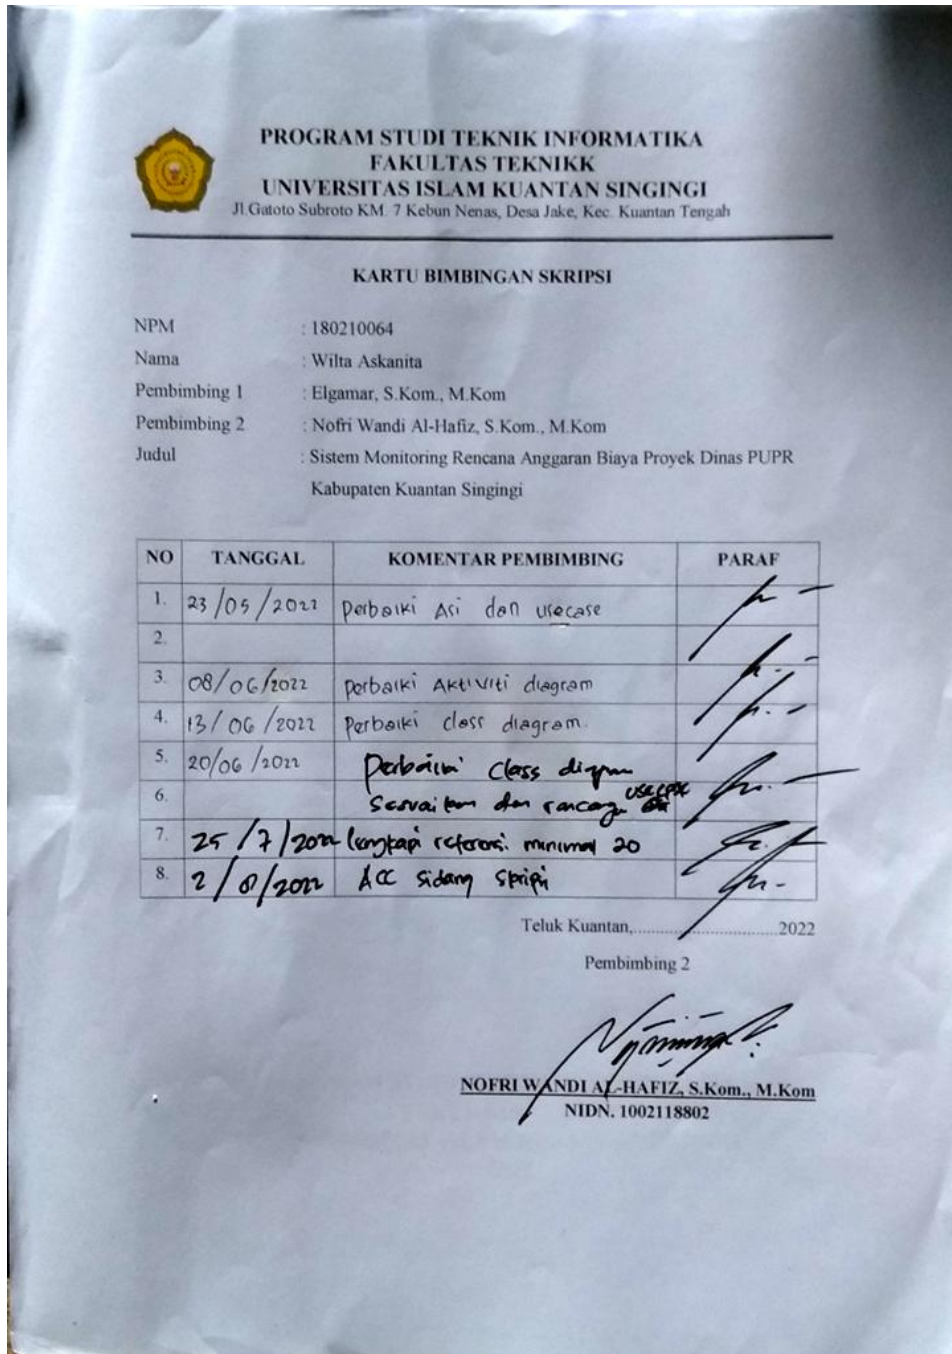 PROGRAM STUDI TEKNIK INFORMATIKA
FAKULTAS TEKNIKK
UNIVERSITAS ISLAM KUANTAN SINGINGI
Jl.Gatoto Subroto KM. 7 Kebun Nenas, Desa Jake, Kec. Kuantan Tengah
KARTU BIMBINGAN SKRIPSI
NPM : 180210064
Nama : Wilta Askanita
Pembimbing 1 : Elgamar, S.Kom., M.Kom
Pembimbing 2 : Nofri Wandi Al-Hafiz, S.Kom., M.Kom
Judul : Sistem Monitoring Rencana Anggaran Biaya Proyek Dinas PUPR
Kabupaten Kuantan Singingi
NO TANGGAL KOMENTAR PEMBIMBING PARAF
1. 23/05/2022 perbaiki Asi dan usecase
2.
3. 08/06/2022 perbaiki Aktiviti diagram
4. 13/06/2022 perbaiki class diagram.
5. 20/06/2022 perbaiki class diagram
6. sesuaikan dan usecase
7. 25/7/2022 lengkapi referensi minimal 20
8. 2/8/2022 ACC sidang skripsi
Teluk Kuantan,..............................2022
Pembimbing 2
NOFRI WANDI AL-HAFIZ, S.Kom., M.Kom
NIDN. 1002118802